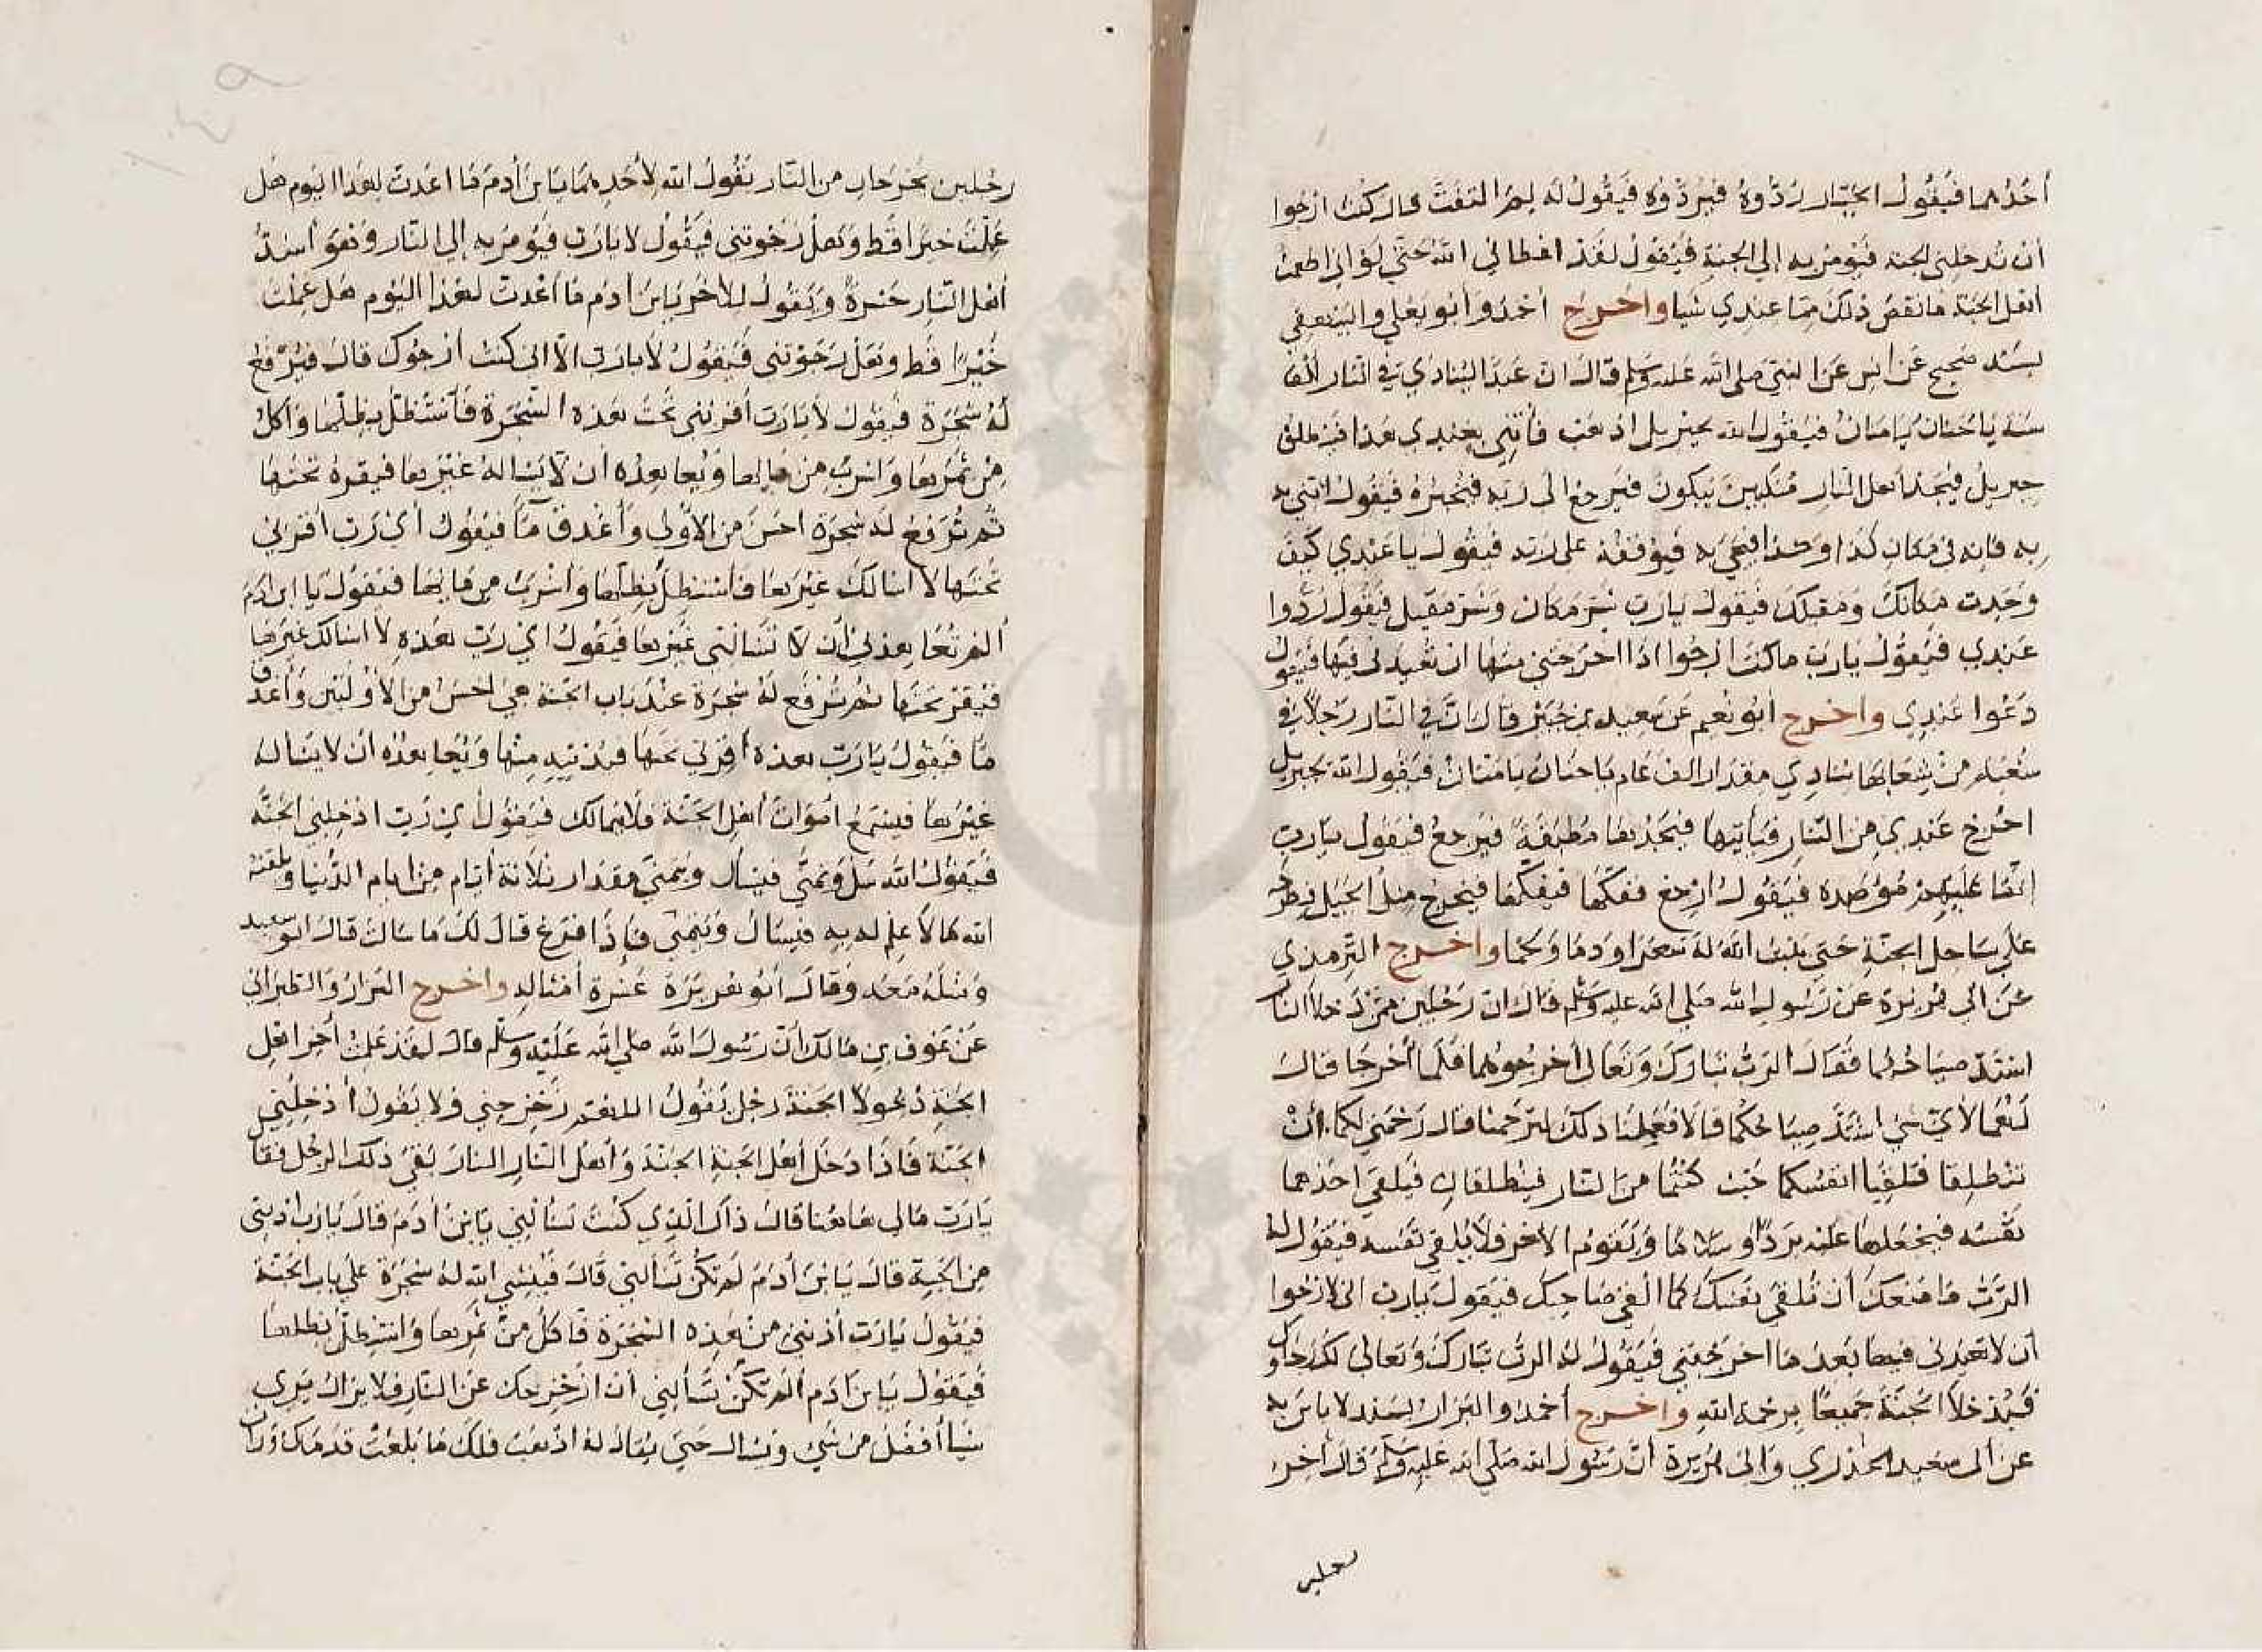 أحدهما فيقول الجبار ردوه فيردوه فيقول له لم التفت قال كنت ارجوا
أن تدخلني الجنة فيومر به إلى الجنة فيقول لقد اعطاني الله حتى لو اني اطعمت
أهل الجنة ما نقص ذلك مما عندي شيا واخرج أحمد وأبو يعلي والبيهقي
بسند صحيح عن انس عن النبي صلى الله عليه وسلم قال ان عبدا لينادي في النار ألف
سنة يا حنان يا منان فيقول الله لجبريل اذهب فأتني بعبدي هذا فينطلق
جبريل فيجد أهل النار منكبين يبكون فيرجع الى ربه فيخبره فيقول ائتني به
به فانه في مكان كذا وهذا فيجي به فيوقفه على ربه فيقول يا عبدي كيف
وجدت مكانك ومقيلك فيقول يا رب شر مكان وشر مقيل فيقول ردوا
عبدي فيقول يا رب ما كنت ارجوا اذا اخرجتني منها ان تعيدني فيها فيقول
دعوا عبدي واخرج أبو نعيم عن سعيد بن جبير قال ان في النار رجلا في
شعب من شعابها ينادي مقدار الف عام يا حنان يا منان فيقول الله لجبريل
اخرج عبدي من النار فيأتيها فيجدها مطبقة فيرجع فيقول يا رب
انها عليهم موصدة فيقول ارجع ففكها فيفكها فيخرج مثل الخيل فيطرحه
على ساحل الجنة حتى ينبت الله له شعرا ودما ولحما واخرج الترمذي
عن ابي هريرة عن رسول الله صلى الله عليه وسلم قال ان رجلين ممن دخلا النار
اشتد صياحهما فقال الرب تبارك وتعالى أخرجوهما فلما أخرجا قال
لهما لاي شي اشتد صياحكما قالا فعلنا ذلك لترحمنا قال رحمتي لكما أن
تنطلقا فتلقيا انفسكما حيث كنتما من النار فينطلقان فيلقي احدهما
نفسه فيجعلها عليه بردا وسلاما ويقوم الاخر فلا يلقي نفسه فيقول له
الرب ما منعك أن تلقي نفسك كما القي صاحبك فيقول يا رب اني لارجوا
أن لا تعيدني فيها بعد ما اخرجتني فيقول له الرب تبارك وتعالى لك رجاوك
فيدخلا الجنة جميعا برحمة الله واخرج أحمد والبزار بسند لا باس به
عن ابي سعيد الخدري وابي هريرة أن رسول الله صلى الله عليه وسلم قال أخر
رجلين
رجلين يخرجان من النار يقول الله لأحدهما يا بن أدم ما اعدت لهذا اليوم هل
عملت خيرا قط وهل رجوتني فيقول لا يا رب فيومر به إلى النار وهو أشد
أهل النار حسرة ويقول للاخر يا بن أدم ما أعدت لهذا اليوم هل عملت
خيرا قط وهل رجوتني فيقول لا يا رب الا اني كنت أرجوك قال فيرفع
له شجرة فيقول لا يا رب أقرني تحت هذه الشجرة فأستظل بظلها واكل
من ثمرها واشرب من مايها ويعاهده أن لا يساله غيرها فيقره تحتها
ثم ترفع له شجرة احسن من الأولى وأغدق مآ فيقول أي رب اقرني
تحتها لا اسالك غيرها فأستظل بظلها واشرب من مايها فيقول يا ابن ادم
ألم تعاهدني أن لا تسالني غيرها فيقول اي رب هذه لا اسالك غيرها
فيقره تحتها ثم ترفع له شجرة عند باب الجنة هي احسن من الأوليين وأغدق
ما فيقول يا رب هذه أقرني تحتها فيدنيه منها ويعاهده ان لا يساله
غيرها فيسمع أصوات أهل الجنة فلا يتمالك فيقول اي رب ادخلني الجنة
فيقول الله سل وتمنى فيسأل ويتمنى مقدار ثلاثة أيام من ايام الدنيا ويلقنه
الله ما لا علم له به فيسأل ويتمنى فإذا فرغ قال لك ما سالت قال ابو سعيد
ومثله معه وقال أبو هريرة عشرة أمثاله واخرج البزار والطبراني
عن عوف بن مالك أن رسول الله صلى الله عليه وسلم قال لقد علمت أخر اهل
الجنة دخولا الجنة رجل يقول اللهم زحزحني ولا يقول أدخلني
الجنة فاذا دخل أهل الجنة الجنة وأهل النار النار بقي ذلك الرجل فقال
يا رب مالي هاهنا قال ذاك الذي كنت تسألني يا بن أدم قال يا رب ادنني
من الجنة قال يا بن أدم لم تكن تسألني قال فينشي الله له شجرة على باب الجنة
فيقول يا رب أدنني من هذه الشجرة فاكل من ثمرها واستظل بظلها
فيقول يا بن ادم ألم تكن تسألني أن ازحزحك عن النار فلا يزال يرى
شيا أفضل من شي ويسال حتى يقال له اذهب فلك ما بلغت قدماك ورات
١٤٩